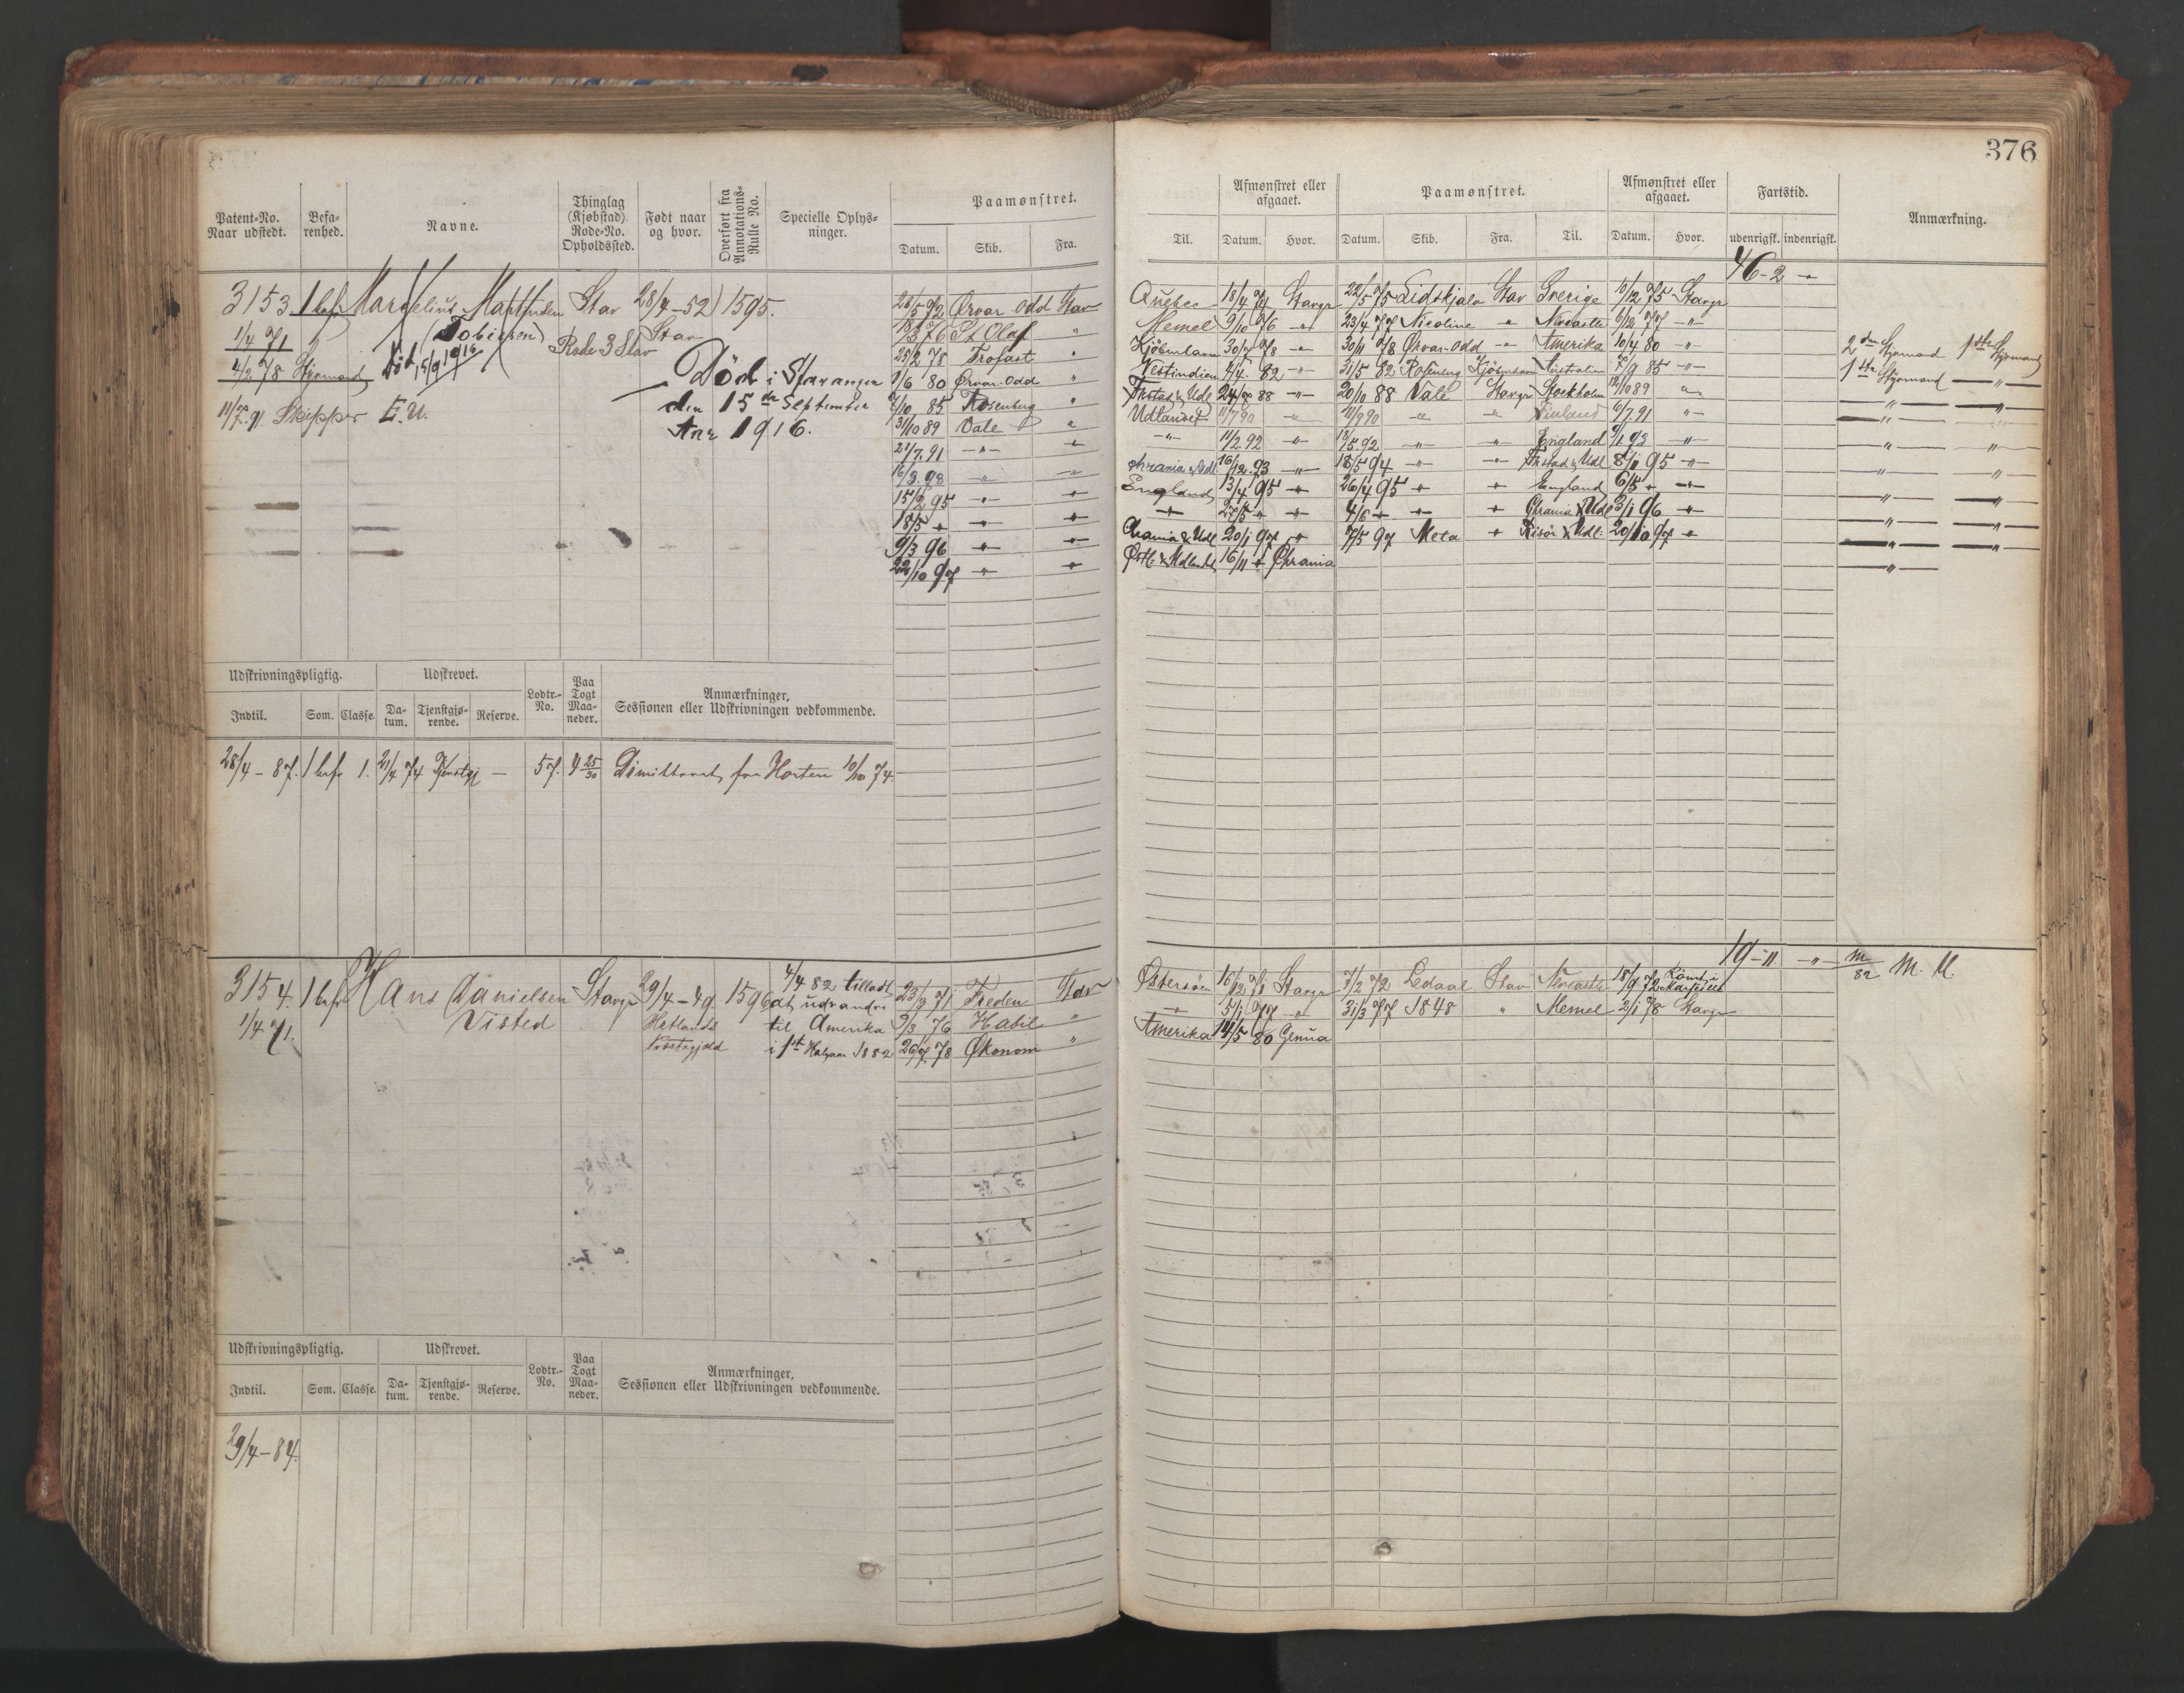 376
Patent-No. Naar udstedt.
Befa-renhed.
Navne.
Thinglag (Kjøbstad) Rode-No. Opholdssted.
Født naar og hvor.
Overført fra Annotations-Rulle No.
Specielle Oplys-ninger.
Paamønstret.
Datum. Skib. Fra.
Til.
Afmønstret eller afgaaet.
Datum. Hvor.
Paamønstret.
Datum. Skib. Fra. Til.
Afmønstret eller afgaaet.
Datum. Hvor.
Fartstid.
udenrigsk. indenrigsk.
Anmærkning.
46-2 -"-
3153 1 bef Marcelius Matthisen Stav 28/4-52 1595.
1/4 71 (Tobiesen) Rode 3 Stav Stav
4/2 78 Styrmand Død 15/9 1916
11/7.91 Skipper E.U.
Død i Stavanger
den 15de September
Anr 1916.
28/5 72 Ørvar Odd Stav Quebec 18/4 74 Stavgr 22/5 75 Lidskjalv Stav Sverige 10/12 75 Stavgr
18/3 76 St Olaf " Memel 9/10 76 -"- 23/4 77 Nicoline " Newcastle 6/12 77 -"-
25/2 78 Trofast " Kjöbenhavn 30/7 78 -"- 30/11 78 Ørvar-Odd -"- Amerika 10/4 80 -"- 2den Styrmand 1ste Styrmand
1/6 80 Ørvar-Odd " Vestindien 4/4 82 -"- 31/5 82 Rosenberg Kjöbenhavn Australien 7/9 85 -"- 1ste Styrmand -"-
7/10 85 Rosenberg " Frstad & Udl 24/8 88 -"- 20/10 88 Vale Stavgr Stockholm 12/10 89 " -"- -"-
31/10 89 Vale " Udlandet 11/7 90 " 11/9 90 -"- -"- Finland 6/7 91 "- -"- -"-
21/7.91 -"- " -"- 11/2.92 -"- 13/5.92 -"- -"- England 9/1 93 -"- " "
16/3.93 -"- -"- Chrania & Udl. 16/12.93 -"- 18/5 94 -"- -"- Frstad & Udl 8/1 95 -"- " "
15/2 95 -"- " England 3/4 95 " 26/4 95 " " England 6/5 " -"- -"- -"-
18/5 " -"- " -"- 27/5 " " 4/6 " " " Chrania & Udl 3/1 96 " -"- -"-
9/3 96 " " Chrania & Udl 20/1 97 " 7/5 97 Meta " Risör & Udl. 20/10 97 " -"- -"-
22/10 97 " " Østl. & Udlandet 16/11 " Chrania -"-
Udskrivningspligtig. Udskrevet. Lodtr.-No. Paa Togt Maa-neder. Anmærkninger, Sessionen eller Udskrivningen vedkommende.
Indtil. Som. Classe. Da-tum. Tjenstgjø-rende. Reserve.
28/4-87. 1 bef 1. 21/4 74 Tjenstgj - 57. 4 25/30 Dimitteret fra Horten 10/10 74.
19-11 -"-
3154. 1 bef Hans Danielsen Stavgr 29/4-49 1596 4/4 82 tilladt
1/4 71. Visted Hetlands at udvandre
Præstegjæld til Amerika
i 1st Halvaar 1882
23/9 71 Freden Stav Østersöen 16/12 71 Stavgr 7/2 72 Ledaal Stav Newcastle 18/9 72
9/3 76 Habil " -"- 5/1 77 " 31/3 77 1848 " Memel 2/1 78 Stavgr
26/7 78 Økonom " Amerika 14/5 80 Genua
M/82 M. U.
Udskrivningspligtig. Udskrevet. Lodtr.-No. Paa Togt Maa-neder. Anmærkninger, Sessionen eller Udskrivningen vedkommende.
Indtil. Som. Classe. Da-tum. Tjenstgjø-rende. Reserve.
29/4-84.